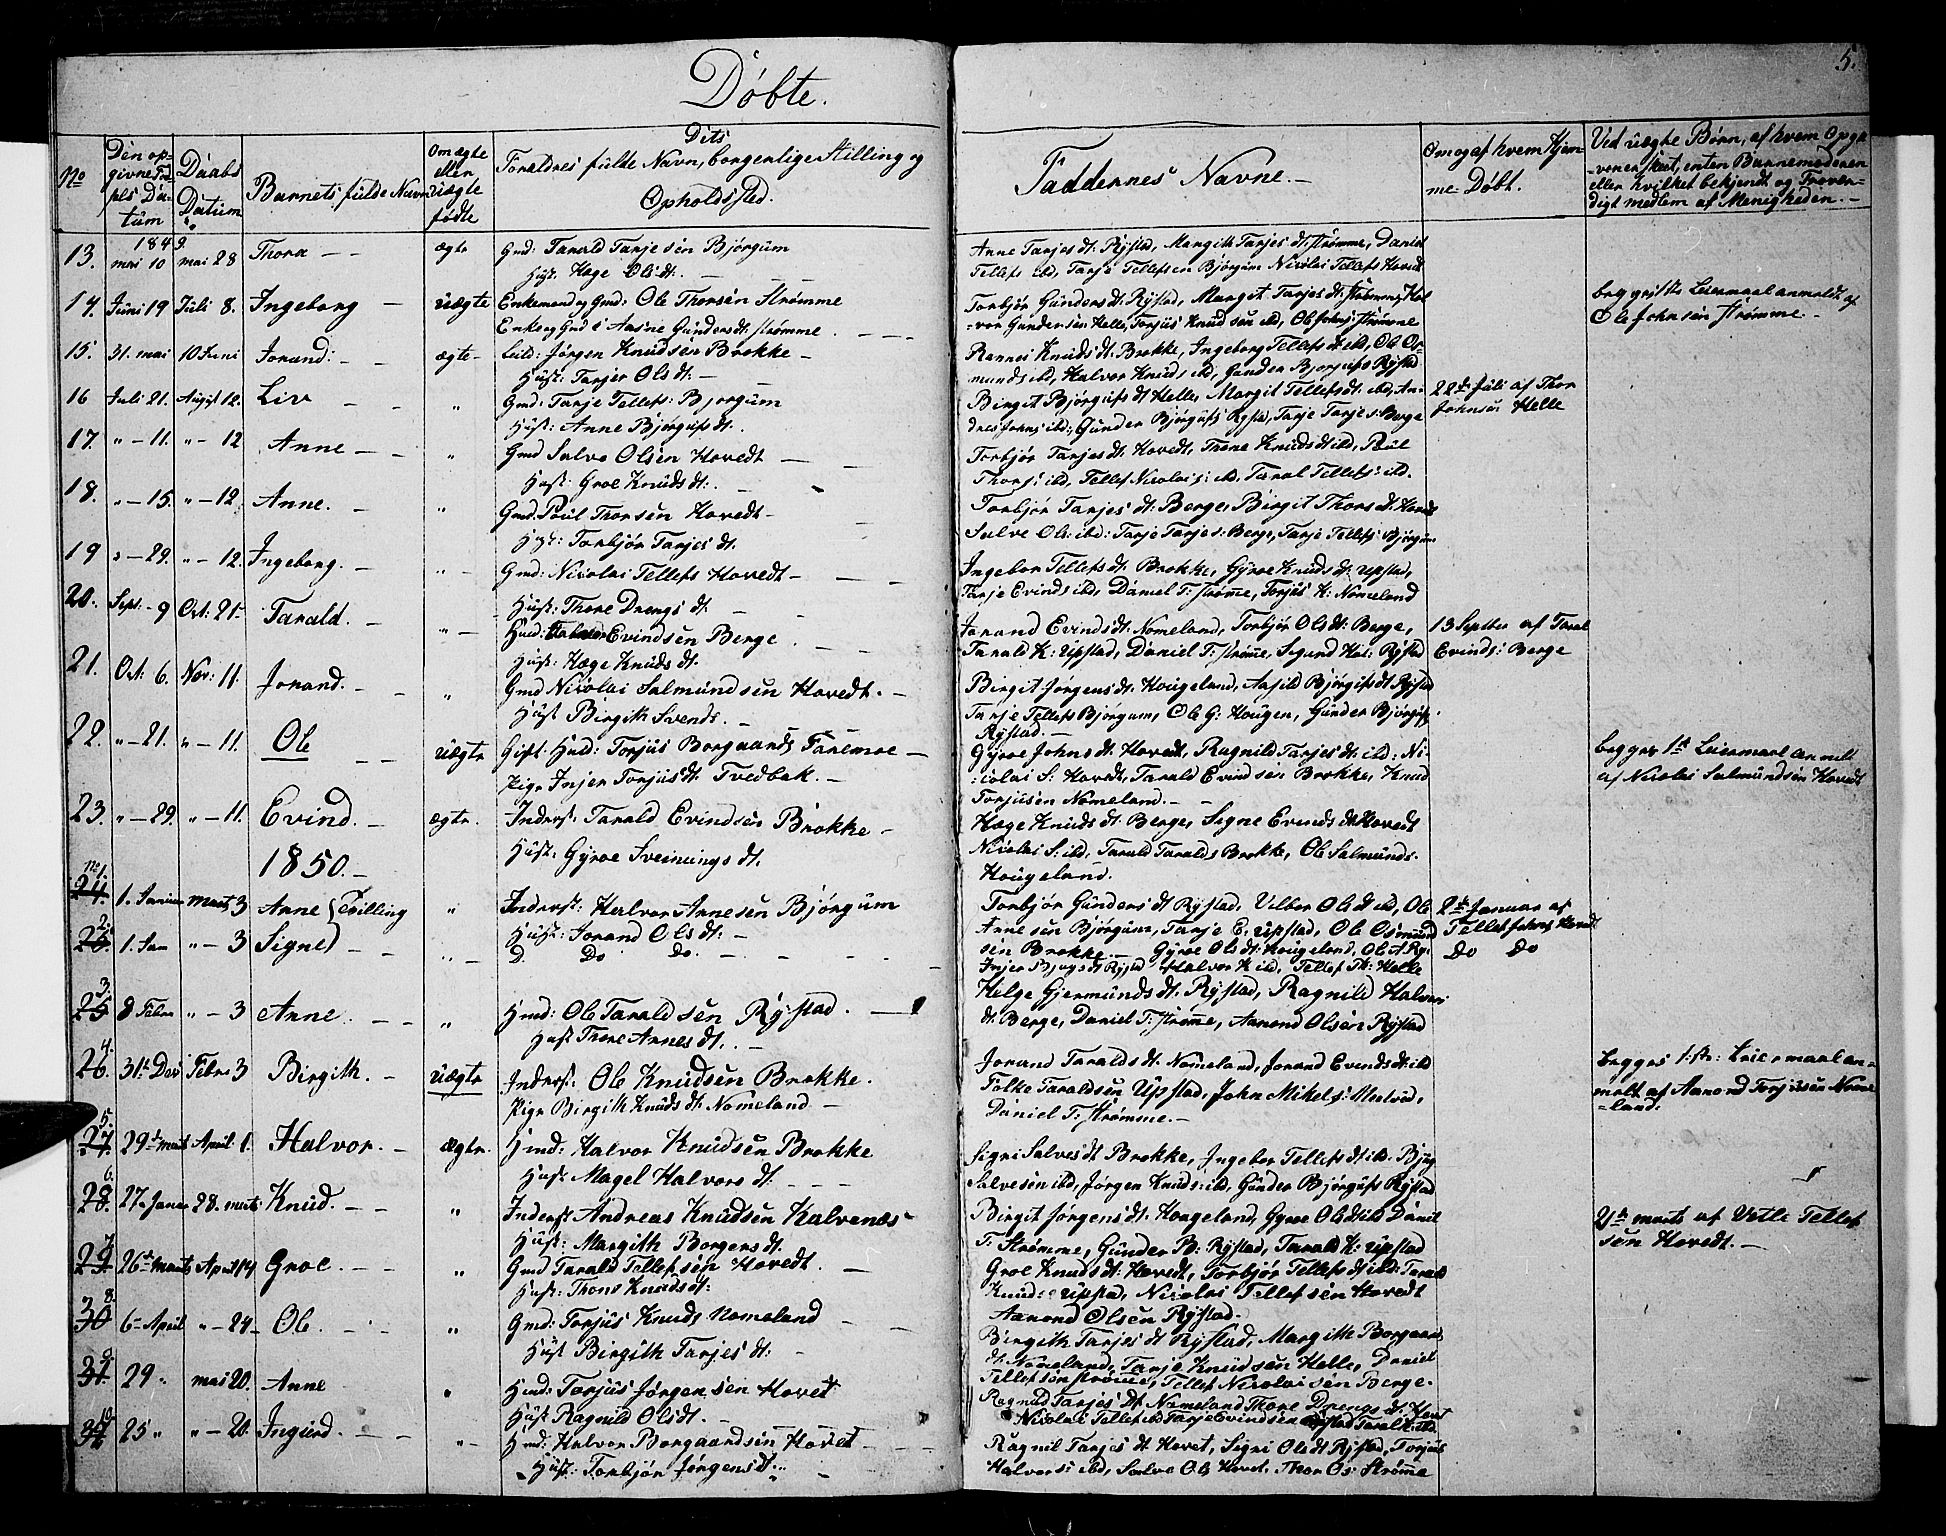 5.
Døbte.
No
Den opgivne Føpls Datum
Daabs Datum
Barnets fulde Navn
Om ægte eller uægte fødte
Dits Foraldres fulde Navn, borgenlige Stilling og Opholdssted.
Faddernes Navne.
Om og af hvem Hjemme Døbt.
Ved uægte Børn, af hvem Opga
eller hvilket bekjendt og Trover-
digt medlem af Menigheden.
1849.
13. mai 10 mai 28 Thora ægte Gmd: Tarald Tarjesen Bjørgum
Hust. Hæge Olsdt.
Anne Tarjesdt: Rystad, Margith Tarjesdt: Strømme, Daniel
Tellefs ibd, Tarje Tellefsen Bjørgum Nicolai Tellefs Hovedt
14. Juni 19 Juli 8. Ingeborg uægte Enkemand og Gmd: Ole Thorsen Strømme
Enke og Gmd: Aasne Gundersdt: Strømme.
Torbjør Gundersdt: Rystad, Margit Tarjesdt: Strømme, Hal
-vor Gundersen Helle, Torjus Knudsen ibd, Ole Johns: Strømme
begges 1ste Leiermaal anmeldt af
Ole Johnsen Strømme.
15. 31. mai 10 Juni Jorand: ægte Leil: Jørgen Knudsen Brokke
Hust: Tarjer Olsdt:
Rannei Knudsdt: Brokke, Ingeborg Tellefsdt ibd, Ole Os-
munds ibd, Halvor Knuds ibd, Gunder Bjorgufss Rystad
16 Juli 21. August 12. Liv " Gmd: Tarje Tellefs: Bjorgum
Hust: Anne Bjørgufsdt.
Birgit Bjørgufsdt Helle, Margit Tellefsdt: ibd, An-
dres Johns ibd:, Gunder Bjørgufss Rystad, Tarje Tarjes: Berge
22de Juli af Thor
Johnsen Helle
17. " - 11. " - 12 Anne " Gmd Salve Olsen Hovedt
Hust: Groe Knudsdt:
Torbjør Tarjesdt: Hovedt, Thone Knudsdt ibd, Poul
Thors: ibd, Tellef Nicolais: ibd, Taral Tellefs: ibd.
18. " - 15. " - 12. Anne. " Gmd. Poul Thorsen Hovedt
Hust: Torbjør Tarjesdt.
Torbjør Tarjesdt: Berge, Birgit Thorsdt: Hovedt
Salve Ols: ibd: Tarje Tarjes: Berge, Tarje Tellefs: Bjørgum
19 " - 29. " - 12. Ingeborg. " Gmd: Nicolai Tellefs Hovedt
Hust: Thore Drengsdt.
Ingebor Tellefsdt: Brokke, Gyroe Knudsdt: Upstad,
Tarje Evinds ibd, Daniel T: Strømme, Torjus K: Nomeland
20. Sept. - 9 Oct: 21. Tarald. " Hmd: Evindsen Berge.
Hust: Hæge Knudsdt.
Jorand Evindsdt: Nomeland, Torbjør Olsdt: Berge,
Tarald K: Upstad, Daniel T: Strømme, Sigurd Hal: Rystad
13 Septber af Taral
Evinds: Berge
21. Oct: 6. Nov: 11. Jorand. " Gmd Nicolai Salmundsen Hovedt.
Hust Birgith Svends.
Birgit Jørgensdt: Hougeland, Aasild Bjørgufsdt Rystad
Tarje Tellefs Bjørgum, Ole G: Hougen, Gunder Bjørgufs
Rystad.
22. " - 21. " - 11. Ole uægte Gift: Hmd: Torjus Borgaards Faremoe
Pige Injer Torjusdt: Tvedbak.
Gyroe Johnsdt: Hovedt, Ragnild Tarjesdt: ibd: Ni-
-colai S: Hovedt, Tarald Evindsen Brokke, Knud
Torjusen Nomeland.
begges 1st Leiermaal anmelt
af Nicolai Salmundsen Hovedt
23. " - 29. " - 11. Evind. ægte. Inderst: Tarald Evindsen Brokke
Hust: Gyroe Sveinungsdt.
Hæge Knudsdt: Berge, Signe Evindsdt: Hovedt
Nicolai S: ibd, Tarald Taralds Brokke, Ole Salmunds.
Hougeland.
1850.
No 1. 24. 1. Januar marts 3 Anne } Tvilling " Inderst: Halvor Arnesen Bjørgum
Hust: Jorand Olsdt:
Torbjør Gundersdt Rystad. Vilbor Olsdt ibd, Ole
Arnesen Bjørgum, Tarje E: Upstad, Ole Osmund
sen Brokke.
2de Januar af
Tellef Johns: Hovedt
2. 25. 1. Jan " - 3 Signe } " D. Do Do.
Gyroe Olsdt: Hougeland, Ole A Ry:
Injer Bjugsdt Rystad Halvor K ibd, Tellef Th: Helle
Do Do
3. 25 8 Febr " - 3 Anne. " Hmd: Ole Taraldsen Rystad.
Hust Thore Arnesdt.
Helge Gjermundsdt. Rystad, Ragnild Halvors
dt: Berge, Daniel T: Strømme, Aanond Olsen Rystad
4. 26. 31te Der Febr 3 Birgith. uægte Inderst: Ole Knudsen Brokke.
Pige Birgith Knudsdt: Nomeland
Jorand Taraldsdt: Nomeland, Jorand Evindsdt: ibd
Folke Taraldsen Upstad, John Mikels:
Daniel T: Strømme.
begges 1:ste: Leiermaal an-
melt af Aanond Torjusen Nome
-land.
5. 27. 29de marts April 1. Halvor. ægte. Hmd: Halvor Knudsen Brokke
Hust: Magel Halvorsdt:
Sigri Salvesdt Brokke, Ingebor Tellefsdt ibd. Bjug
Salvesen ibd, Jørgen Knuds: ibd, Gunder Bjørgufs: Rystad
6. 28. 27. Januar 28. marts Knud. " Inderst Andreas Knudsen Kalvenes
Hust: Margith Borgersdt.
Birgit Jørgensdt: Hougeland, Gyroe Olsdt: ibd Daniel
T: Strømme, Gunder B: Rystad, Tarald K: Upstad
2den marts af Vetle Tellef
sen Hovedt.
7. 29. 26de marts April 14 Groe. " Gmd Tarald Tellefsen Hovedt.
Hust: Thone Knudsdt:
Groe Knudsdt: Hovedt, Torbjør Tellefsdt ibd: Tarald
Knuds: Upstad, Nicolai Tellefsen Hovedt
Aanond Olsen Rystad.
8. 30 6te April " - 24 Ole. " Gmd: Torjus Knuds Nomeland
Hust Birgith Tarjesdt:
Birgith Tarjesdt Rystad, Margith Borgaards
dt: Nomeland, Tarje Knudsen Helle, Daniel
Tellefsen Strømme, Tellef Nicolaisen Berge.
9. 31. 29 " mai 20. Anne " Hmd: Torjus Jørgensen Hovet
Hust Ragnild Olsdt.
Ragnild Tarjesdt Nomeland Thore Drengsdt. Hovet
Nicolai Tellefs ibd Tarje Evindsen Upstad Tarald K: ibd.
10. 32 25 " " - 20. Ingurd. " Hmd: Halvor Borgaardsen Hovet
Hust: Torbjør Jørgensdt:
Ragnil Tarjesdt. Hovet, Sigri Olsdt Rystad, Torjus
Halvors: ibd, Salve Ols Hovet, Thor Os: Strømme